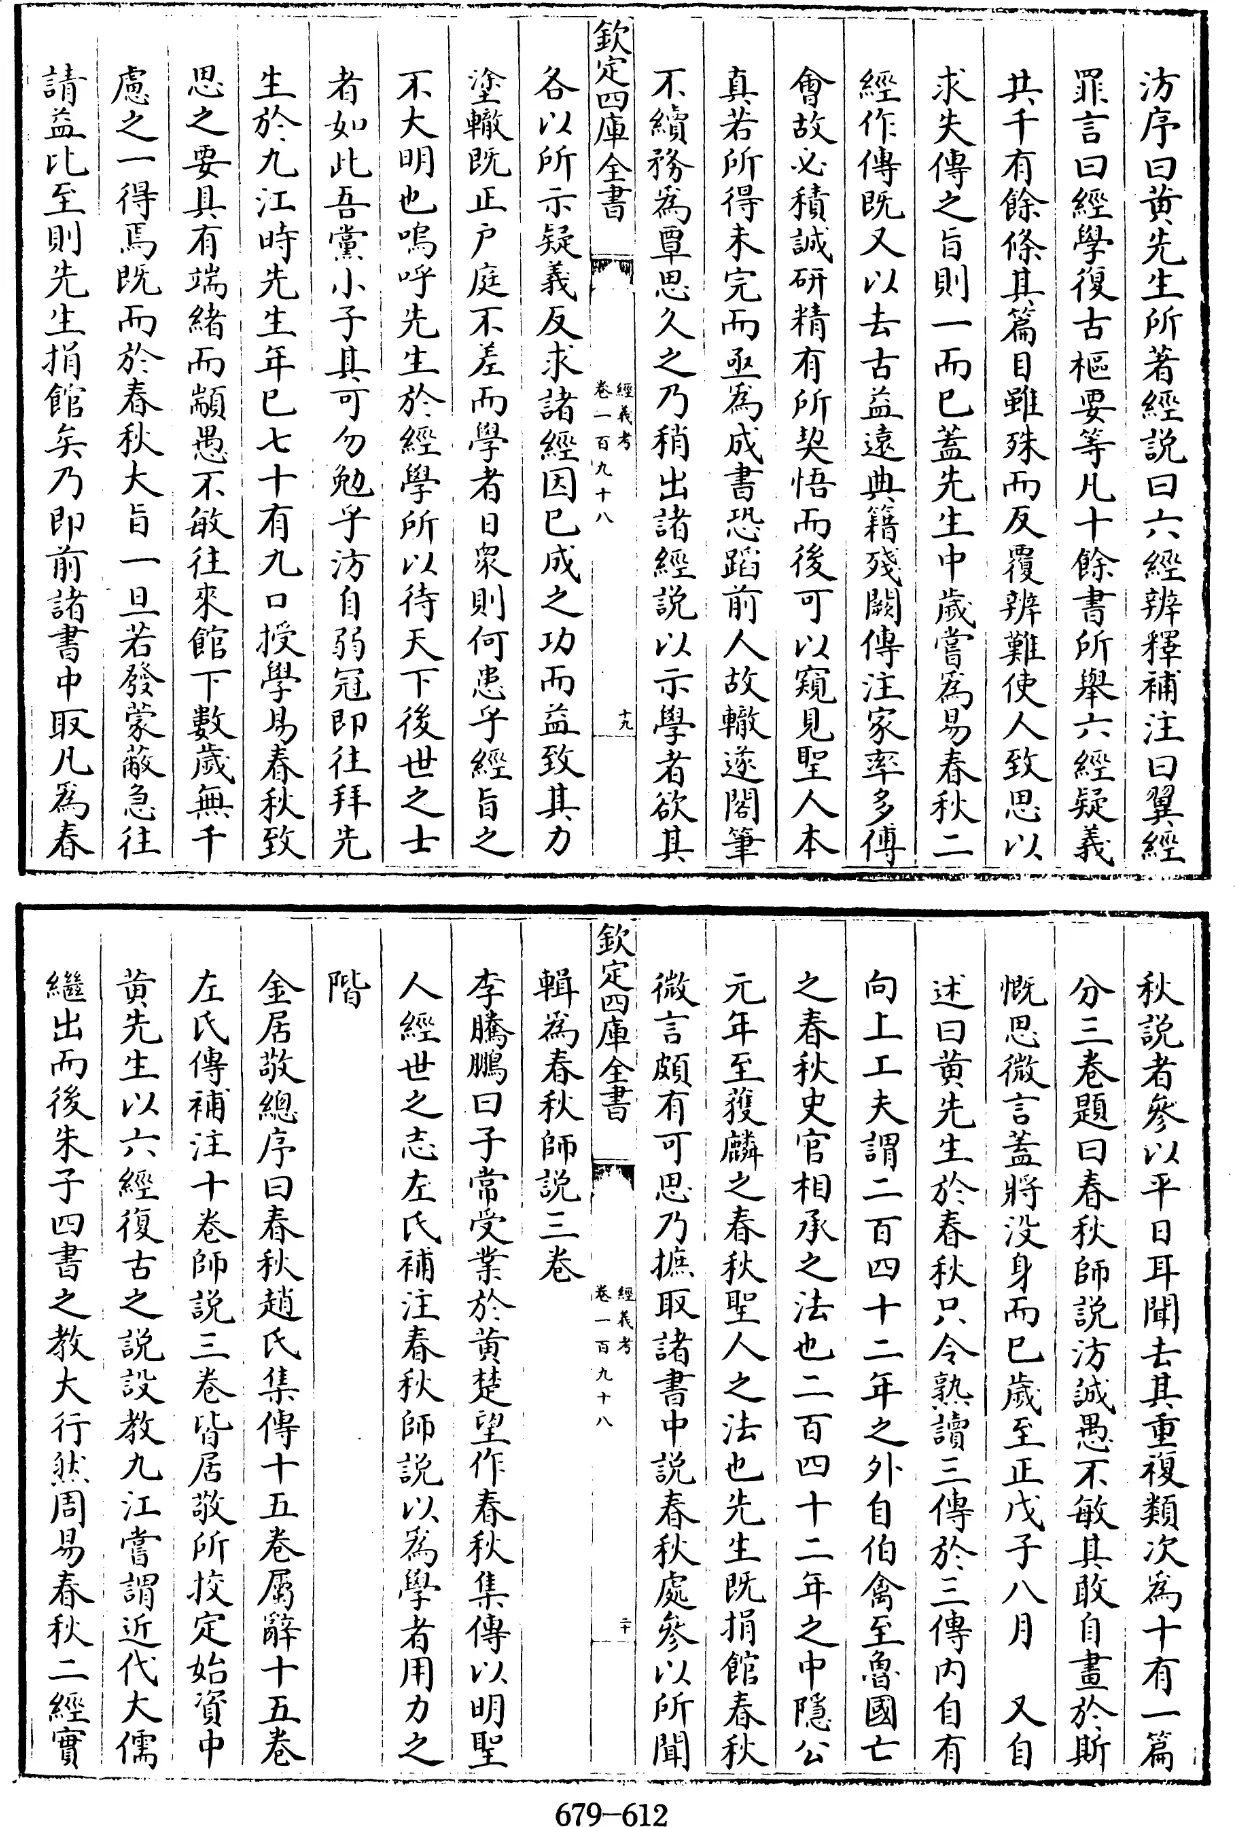 汸序曰黄先生所著經説曰六經辨釋補注曰翼經
罪言曰經學復古樞要等凡十餘書所舉六經疑義
共千有餘條其篇目雖殊而反覆辨難使人致思以
求失傳之旨則一而已蓋先生中歲嘗爲易春秋二
經作傳既又以去古益遠典籍殘闕傳注家率多傅
會故必積誠研精有所契悟而後可以窺見聖人本
真若所得未完而亟爲成書恐蹈前人故轍遂閣筆
不續務爲覃思久之乃稍出諸經說以示學者欲其
欽定四庫全書
經義考
卷一百九十八
十九
各以所示疑義反求諸經因已成之功而益致其力
塗轍既正户庭不差而學者日衆則何患乎經旨之
不大明也嗚呼先生於經學所以待天下後世之士
者如此吾黨小子其可勿勉乎汸自弱冠即往拜先
生於九江時先生年已七十有九口授學易春秋致
思之要具有端緒而顓愚不敏往來館下數歲無千
慮之一得焉既而於春秋大旨一旦若發蒙蔽急往
請益比至則先生捐館矣乃即前諸書中取凡爲春
秋説者參以平日耳聞去其重複類次爲十有一篇
分三卷題曰春秋師説汸誠愚不敏其敢自畫於斯
慨思微言蓋將没身而已歲至正戊子八月 又自
述曰黄先生於春秋只令熟讀三傳於三傳内自有
向上工夫謂二百四十二年之外自伯禽至魯國亡
之春秋史官相承之法也二百四十二年之中隱公
元年至獲麟之春秋聖人之法也先生既捐館春秋
微言頗有可思乃摭取諸書中説春秋處參以所聞
欽定四庫全書
經義考
卷一百九十八
二十
輯爲春秋師説三卷
李騰鵬曰子常受業於黄楚望作春秋集傳以明聖
人經世之志左氏補注春秋師説以爲學者用力之
階
金居敬總序曰春秋趙氏集傳十五卷屬辭十五卷
左氏傳補注十卷師説三卷皆居敬所挍定始資中
黄先生以六經復古之説設教九江嘗謂近代大儒
繼出而後朱子四書之教大行然周易春秋二經實
679-612